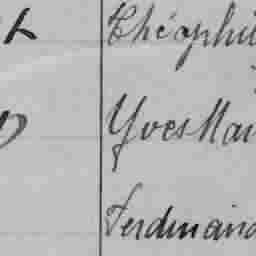 Théophil
Yves Mar
Ferdinand